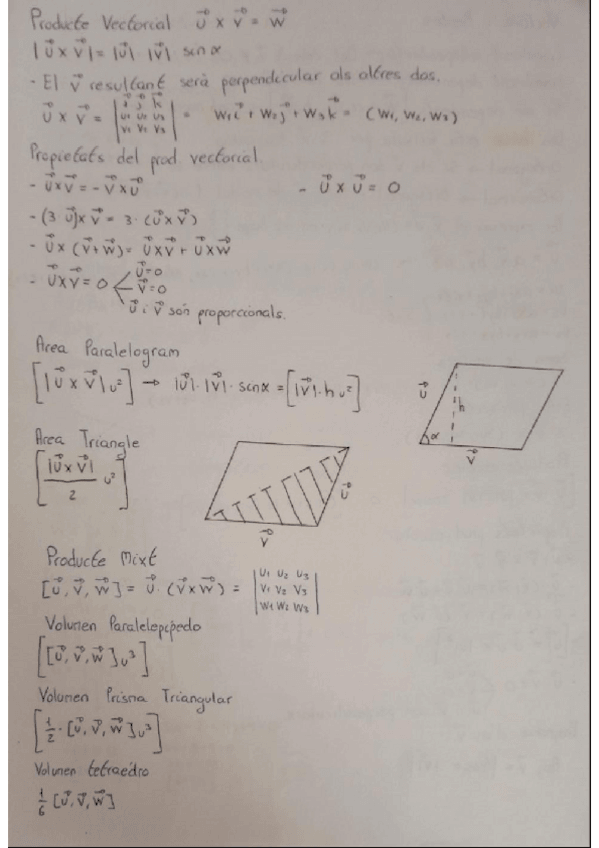 Producte Vectorial u⃗ x v⃗ = w⃗
|u⃗ x v⃗| = |u⃗| · |v⃗| sin α
- El v⃗ resultant serà perpendicular als altres dos.
u⃗ x v⃗ = |i⃗ j⃗ k⃗; u₁ u₂ u₃; v₁ v₂ v₃| = w₁i⃗ + w₂j⃗ + w₃k⃗ = (w₁, w₂, w₃)
Propietats del prod. vectorial.
- u⃗ x v⃗ = - v⃗ x u⃗ - u⃗ x u⃗ = 0
- (3·u⃗) x v⃗ = 3 · (u⃗ x v⃗)
- u⃗ x (v⃗ + w⃗) = u⃗ x v⃗ + u⃗ x w⃗
- u⃗ x v⃗ = 0
u⃗ = 0
v⃗ = 0
u⃗ i v⃗ són proporcionals.
Àrea Paralelogram
[|u⃗ x v⃗| u²] → |u⃗| · |v⃗| · sin α = [|v⃗| · h u²]
u⃗
h
α
v⃗
Àrea Triangle
[|u⃗ x v⃗| / 2 u²]
u⃗
v⃗
Producte Mixt
[u⃗, v⃗, w⃗] = u⃗ · (v⃗ x w⃗) = |u₁ u₂ u₃; v₁ v₂ v₃; w₁ w₂ w₃|
Volumen Paralelepípedo
[[u⃗, v⃗, w⃗] u³]
Volumen Prisma Triangular
[1/2 · [u⃗, v⃗, w⃗] u³]
Volumen tetraedro
1/6 [u⃗, v⃗, w⃗]